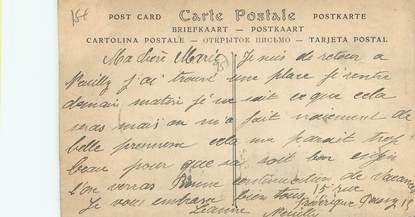 15t
POST CARD Carte Postale POSTKARTE
BRIEFKAART — POSTKAART
CARTOLINA POSTALE — ОТКРЫТОЕ ПИСЬМО — TARJETA POSTAL
Ma Je suis de retour a
Neuilly j'ai trouve une place je rentre
demain matin je ne sait ce que cela
seras mais on m'a fait vraiment de
belle promesse cela me parait trop
beau pour que sa soit bon enfin
l'on verras Bonne continuation de
Je vous embrasse bien tous 15 rue
Jeanne Neuilly